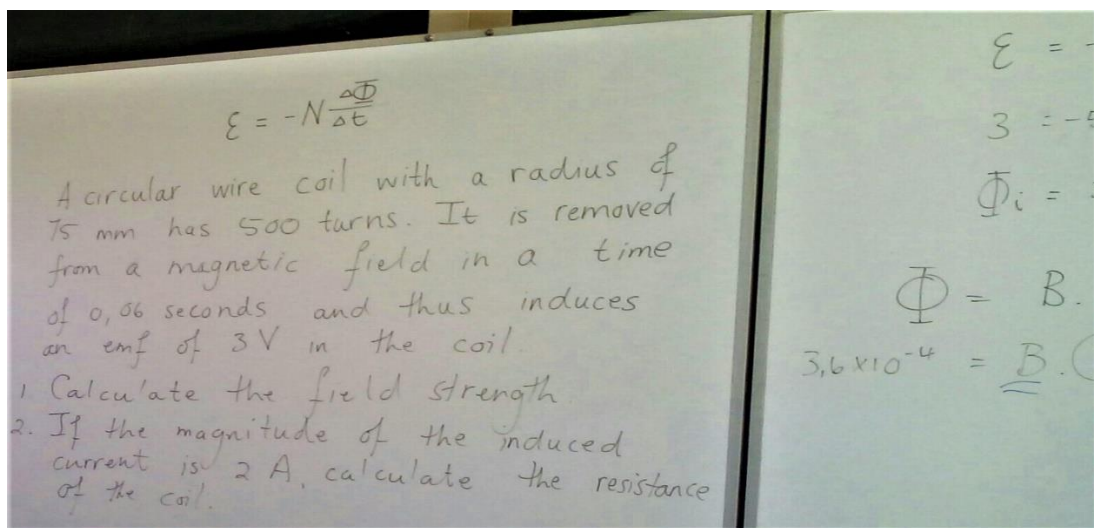 ε = -N ΔΦ/Δt
A circular wire coil with a radius of
75 mm has 500 turns. It is removed
from a magnetic field in a time
of 0,06 seconds and thus induces
an emf of 3 V in the coil.
1. Calculate the field strength.
2. If the magnitude of the induced
current is 2 A, calculate the resistance
of the coil.
ε = -
3 = -5
Φi =
Φ = B.
3,6 x 10⁻⁴ = B. (